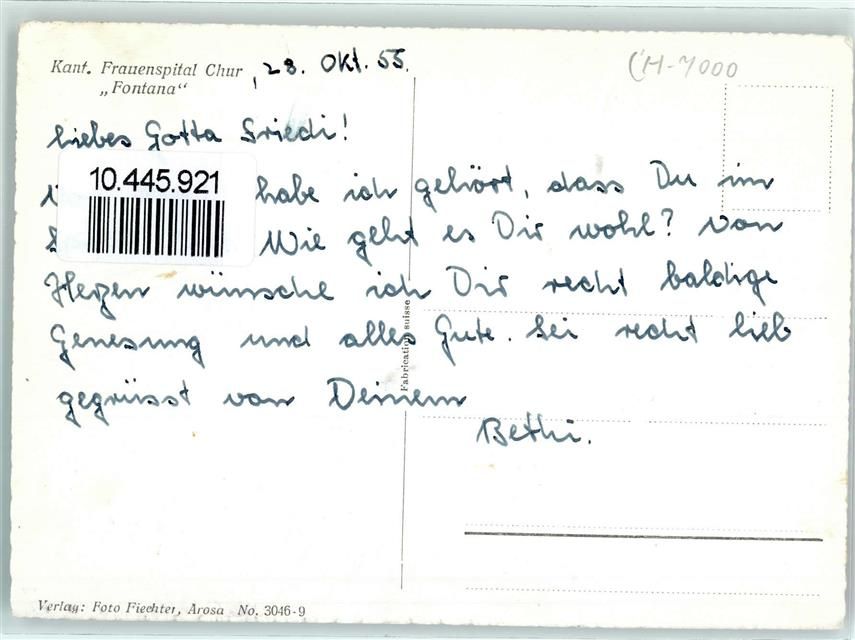 Kant. Frauenspital Chur
„Fontana“
, 28. Okt. 55.
(H-7000
Liebes Gotta Friedi!
habe ich gehört, dass Du im
Wie geht es Dir wohl? Von
Herzen wünsche ich Dir recht baldige
Genesung und alles Gute. Sei recht lieb
gegrüsst von Deinem
Bethi.
10.445.921
Fabrication suisse
Verlag: Foto Fiechter, Arosa No. 3046-9